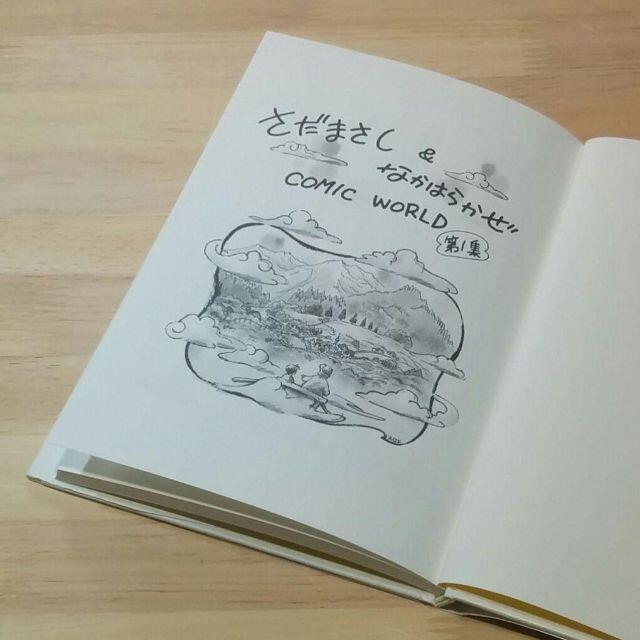 とだまさし &
なかはらかぜ
COMIC WORLD
第1集